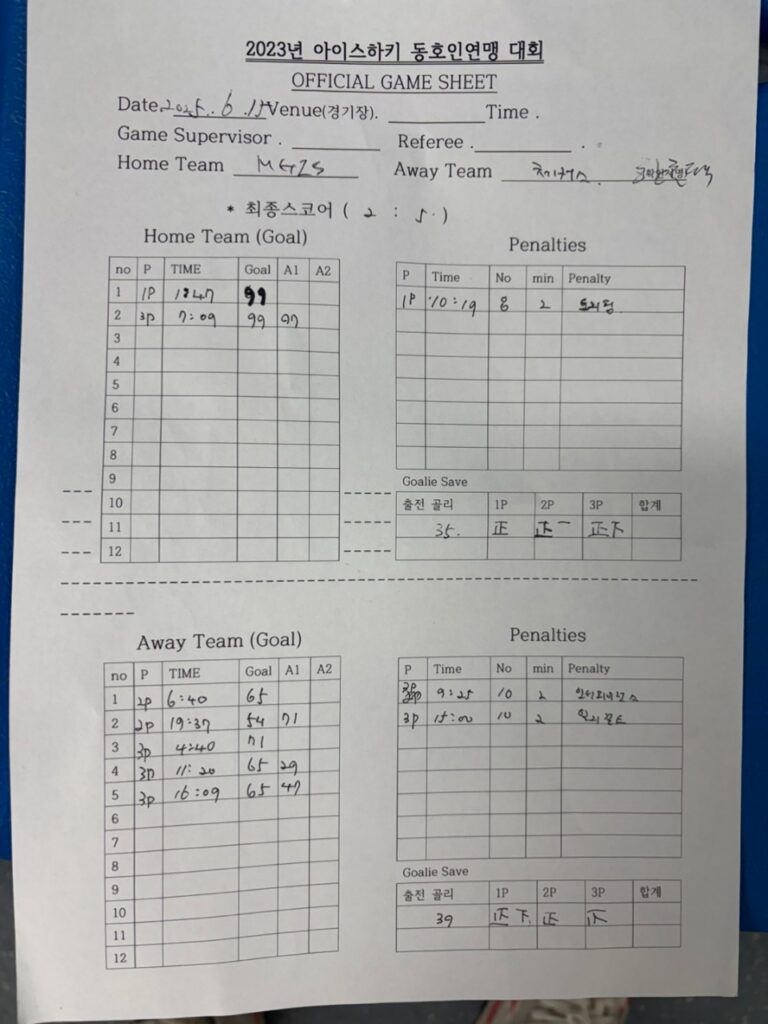 2023년 아이스하키 동호인연맹 대회
OFFICIAL GAME SHEET
Date 2025. 6. 15 Venue(경기장). Time .
Game Supervisor . Referee . .
Home Team MGZS Away Team
* 최종스코어 ( 2 : 5 . )
Home Team (Goal)
no P TIME Goal A1 A2
1 1P 1:47 99
2 3P 7:09 99 97
3
4
5
6
7
8
9
10
11
12
Penalties
P Time No min Penalty
1P 10:19 8 2
Goalie Save
출전 골리 1P 2P 3P 합계
35. 正 正一 正下
Away Team (Goal)
no P TIME Goal A1 A2
1 2P 6:40 65
2 2P 19:37 54 71
3 3P 4:40 71
4 3P 11:20 65 29
5 3P 16:09 65 47
6
7
8
9
10
11
12
Penalties
P Time No min Penalty
9:25 10 2
3P 15:00 10 2
Goalie Save
출전 골리 1P 2P 3P 합계
39 正下 正